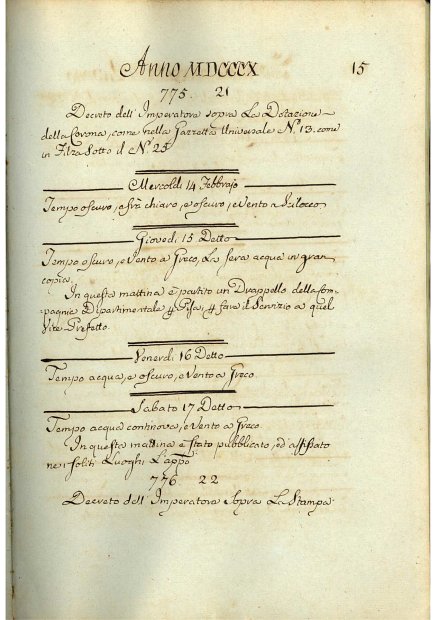 Anno MDCCCX 15
775. 21
Decreto dell'Imperatore sopra La Dotazione
della Corona, come nella Gazzetta Universale N.º 13. come
in Filza Sotto il N.º 25
Mercoldi 14 Febbrajo
Tempo oscuro, e frà chiaro, e oscuro, e Vento a Scilocco
Giovedi 15 Detto
Tempo oscuro, e Vento a Greco, La sera acqua in gran
copia.
In questa mattina è partito un Drappello della Com-
pagnia Dipartimentale p Pisa, p fare il Servizio a quel
Vice-Prefetto.
Venerdi 16 Detto
Tempo acqua, e oscuro, e Vento a Greco
Sabato 17 Detto
Tempo acqua continova, e Vento a Greco
In questa mattina è stato pubblicato, ed affissato
ne i soliti Luoghi L'appo
776 22
Decreto dell'Imperatore Sopra La Stampa